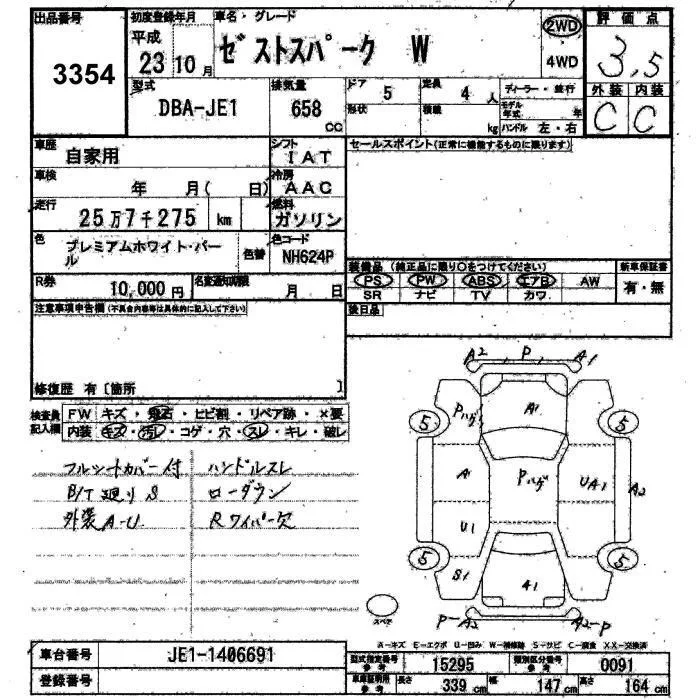 出品番号 初度登録年月 車名・グレード 2WD 評価点
3354 平成 23 10月 ゼストスパーク W 4WD 3.5
型式 排気量 ドア 5 定員 4人 ディーラー・並行 外装 内装
DBA-JE1 658 CC 形状 積載 kg モデル年式 年 C C
ハンドル 左・右
車歴 自家用 シフト IAT セールスポイント(正常に機能するものに限ります)
車検 年 月( 日) 冷房 AAC
走行 25万7千275 km 燃料 ガソリン
色 プレミアムホワイト・パール 色替 色コード NH624P
装備品(純正品に限り○をつけてください) 新車保証書
R券 10,000円 名変通知期限 月 日 PS PW ABS エアB AW 有・無
SR ナビ TV カワ
注意事項申告欄(不具合内容等は具体的に記入して下さい) 後日品
修復歴 有〔箇所 〕
検査員記入欄 FW キズ・飛石・ヒビ割・リペア跡・×要
内装 キズ・汚レ・コゲ・穴・スレ・キレ・破レ
フルシートカバー付 ハンドルスレ
B/T廻りS ローダウン
外装A-U Rワイパー欠
A2 P A1
5 Pハゲ A1 5
A1 Pハゲ UA1 A2
U1
5 S1 A1 5
スペア P-A2 A2-P
A-キズ E-エクボ U-凹み W-補修跡 S-サビ C-腐食 XX-交換済
車台番号 JE1-1406691 型式指定番号 参考 15295 類別区分番号 参考 0091
登録番号 車庫証明用 参考 長さ 339 cm 幅 147 cm 高さ 164 cm